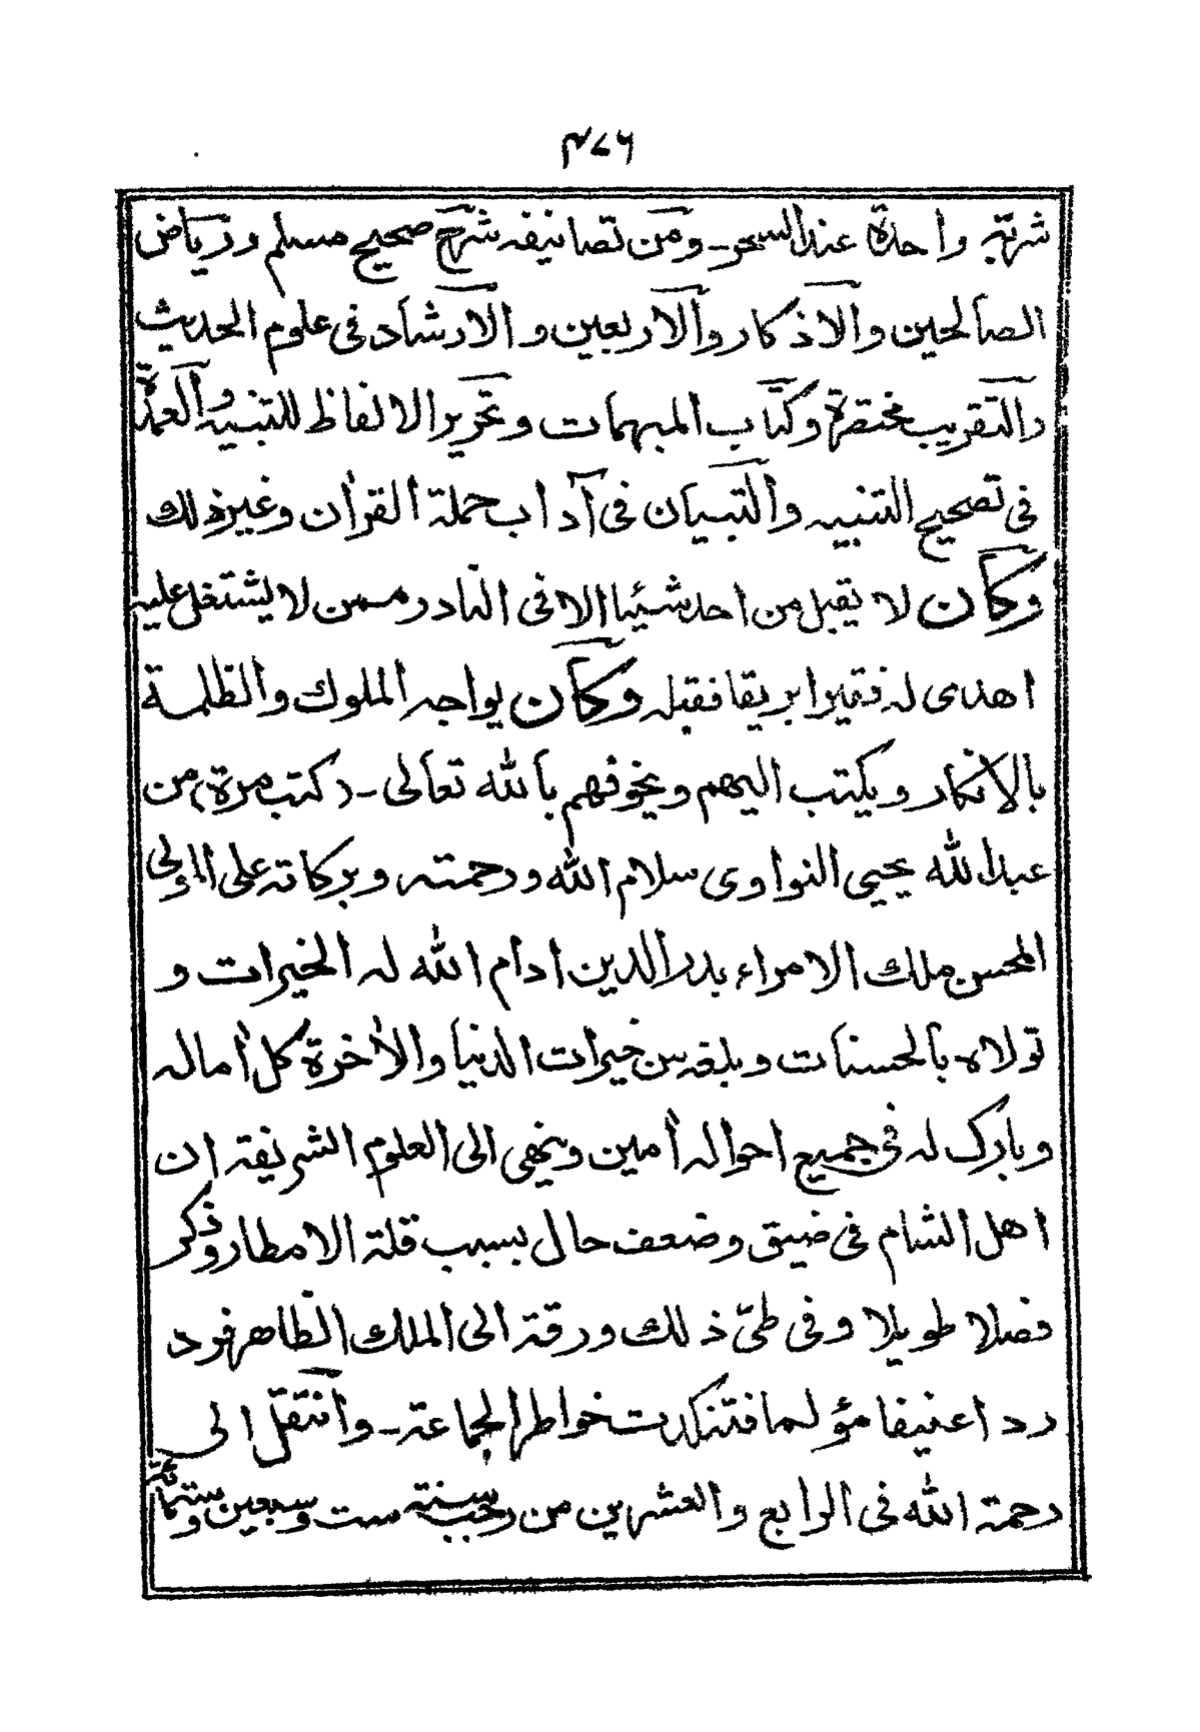 ٤٧٦
شربة واحدة عند السحر ـ ومن تصانيفه شرح صحيح مسلم ورياض
الصالحين والاذكار والاربعين والارشاد فى علوم الحديث
والتقريب مختصرة وكتاب المبهمات وتحرير الالفاظ للتنبيه والعمدة
فى تصحيح التنبيه والتبيان فى آداب حملة القرأن وغير ذلك
وكان لا يقبل من احد شيئا الا فى النادر ممن لا يشتغل عليه
اهدى له فقير ابريقا فقبله وكان يواجه الملوك والظلمة
بالانكار ويكتب اليهم ويخوفهم بالله تعالى ـ (كتب مرة) من
عبد الله يحيى النواوى سلام الله ورحمته وبركاته على المولى
المحسن ملك الامراء بدر الدين ادام الله له الخيرات و
تولاه بالحسنات وبلغه من خيرات الدنيا والأخرة كل أماله
وبارك له فى جميع احواله أمين وينهى الى العلوم الشريفة ان
اهل الشام فى ضيق وضعف حال بسبب قلة الامطار وذكر
فصلا طويلا وفى طىّ ذلك ورقة الى الملك الظاهر فرد
رد اعنيفا مؤلما فتنكدت خواطر الجماعة ـ وانتقل الى
رحمة الله فى الرابع والعشرين من رجب سنة ست وسبعين وستمائة